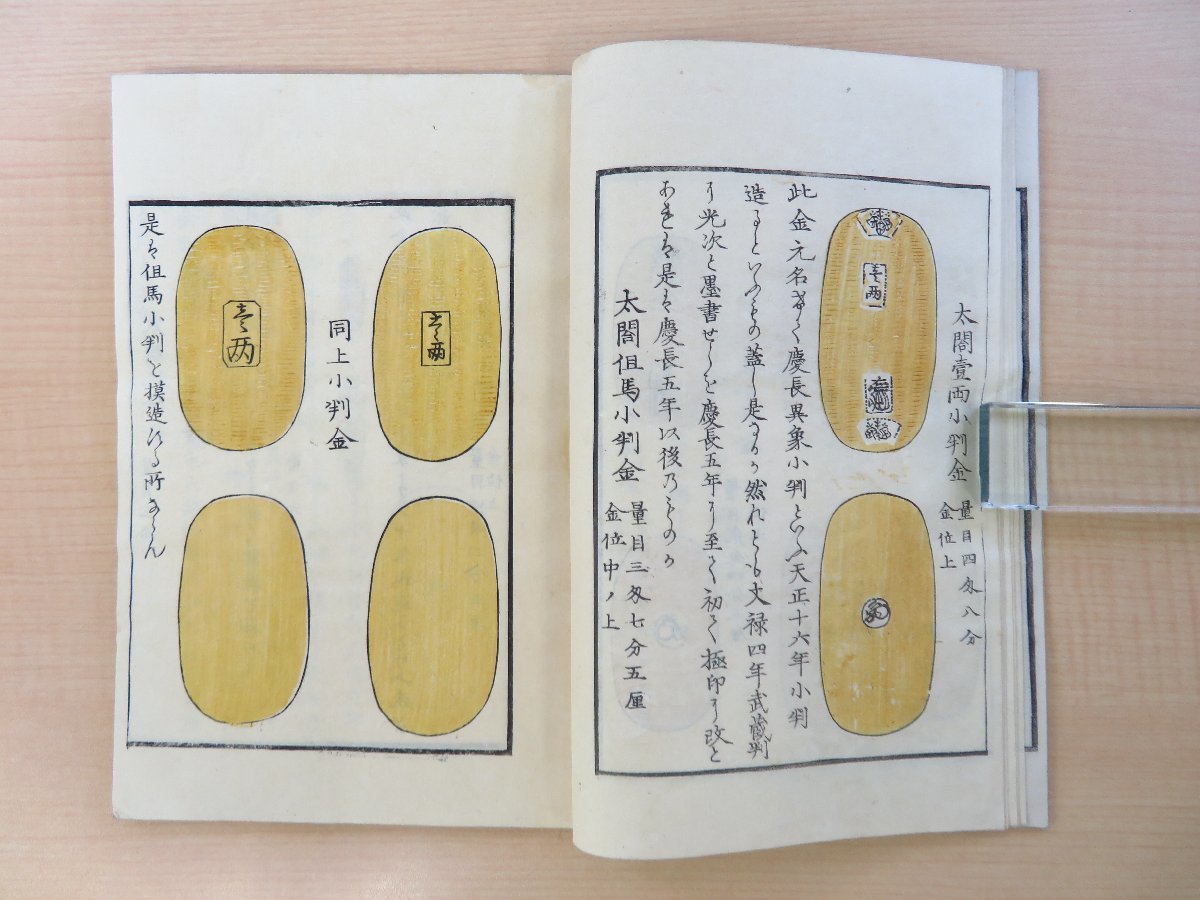 太閤壹両小判金
量目四匁八分
金位上
壱両
此金元名なく慶長異象小判といふ天正十六年小判
造るといふもの蓋し是なるか然れとも文禄四年武蔵判
り光次と墨書せしを慶長五年り至て初て極印り改と
あれは是は慶長五年以後乃ものか
太閤但馬小判金
量目三匁七分五厘
金位中ノ上
壱両
同上小判金
壱両
是は但馬小判を摸造する所ならん